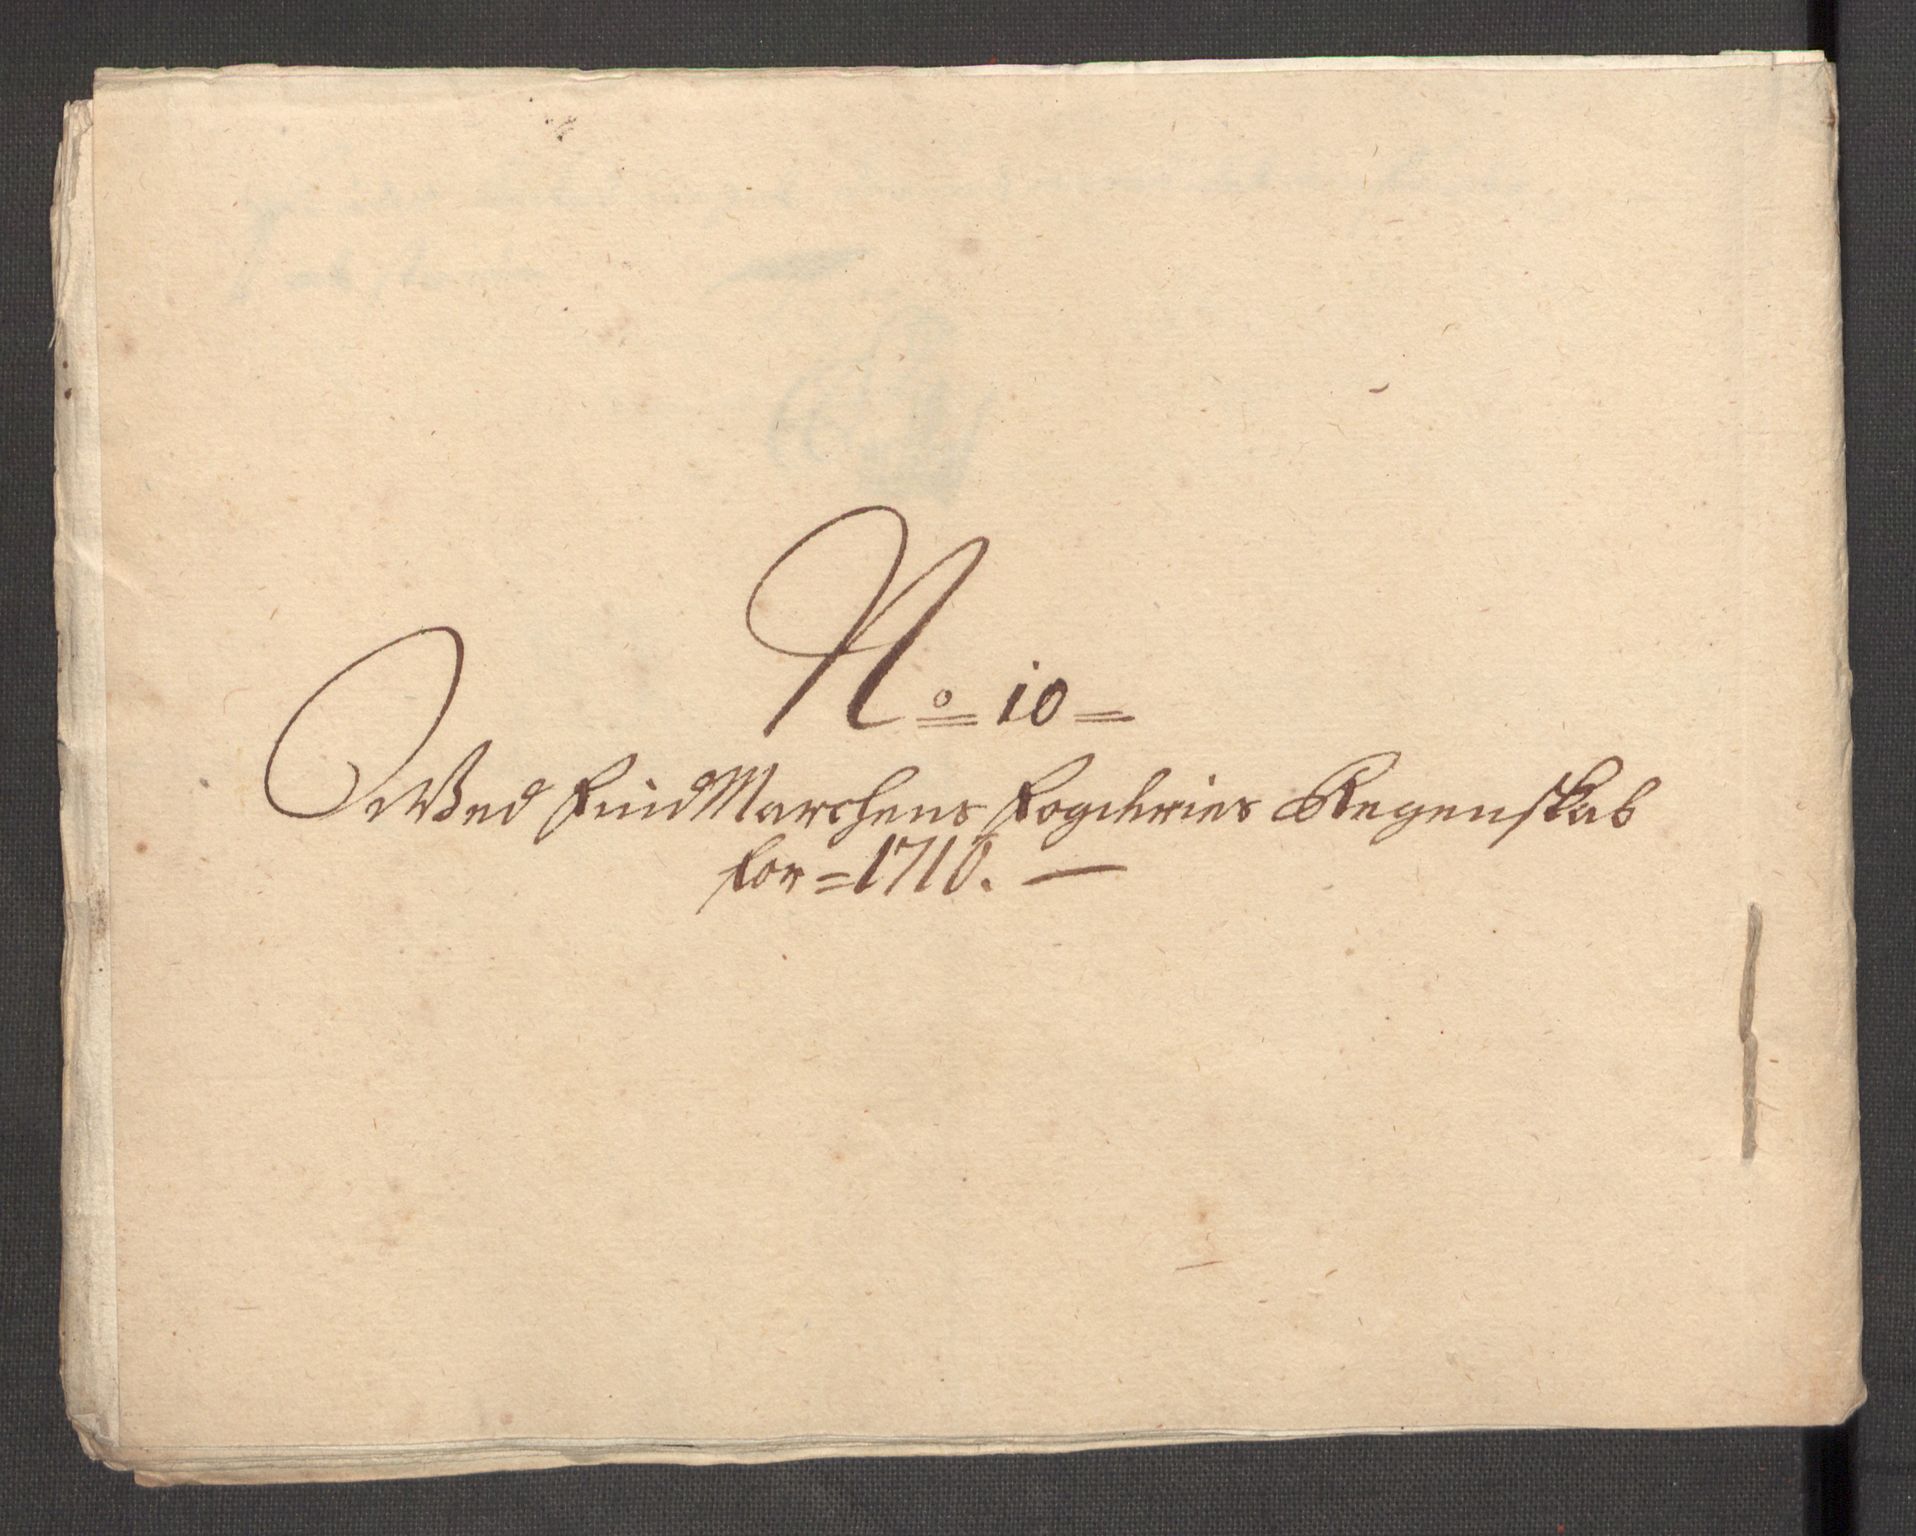 No 10
Wed FindMarchens Fogderies Regenskab
for 1710.